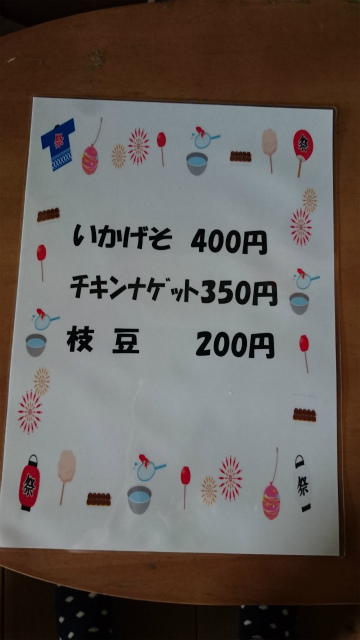 祭
祭
いかげそ 400円
チキンナゲット350円
枝豆 200円
祭
祭